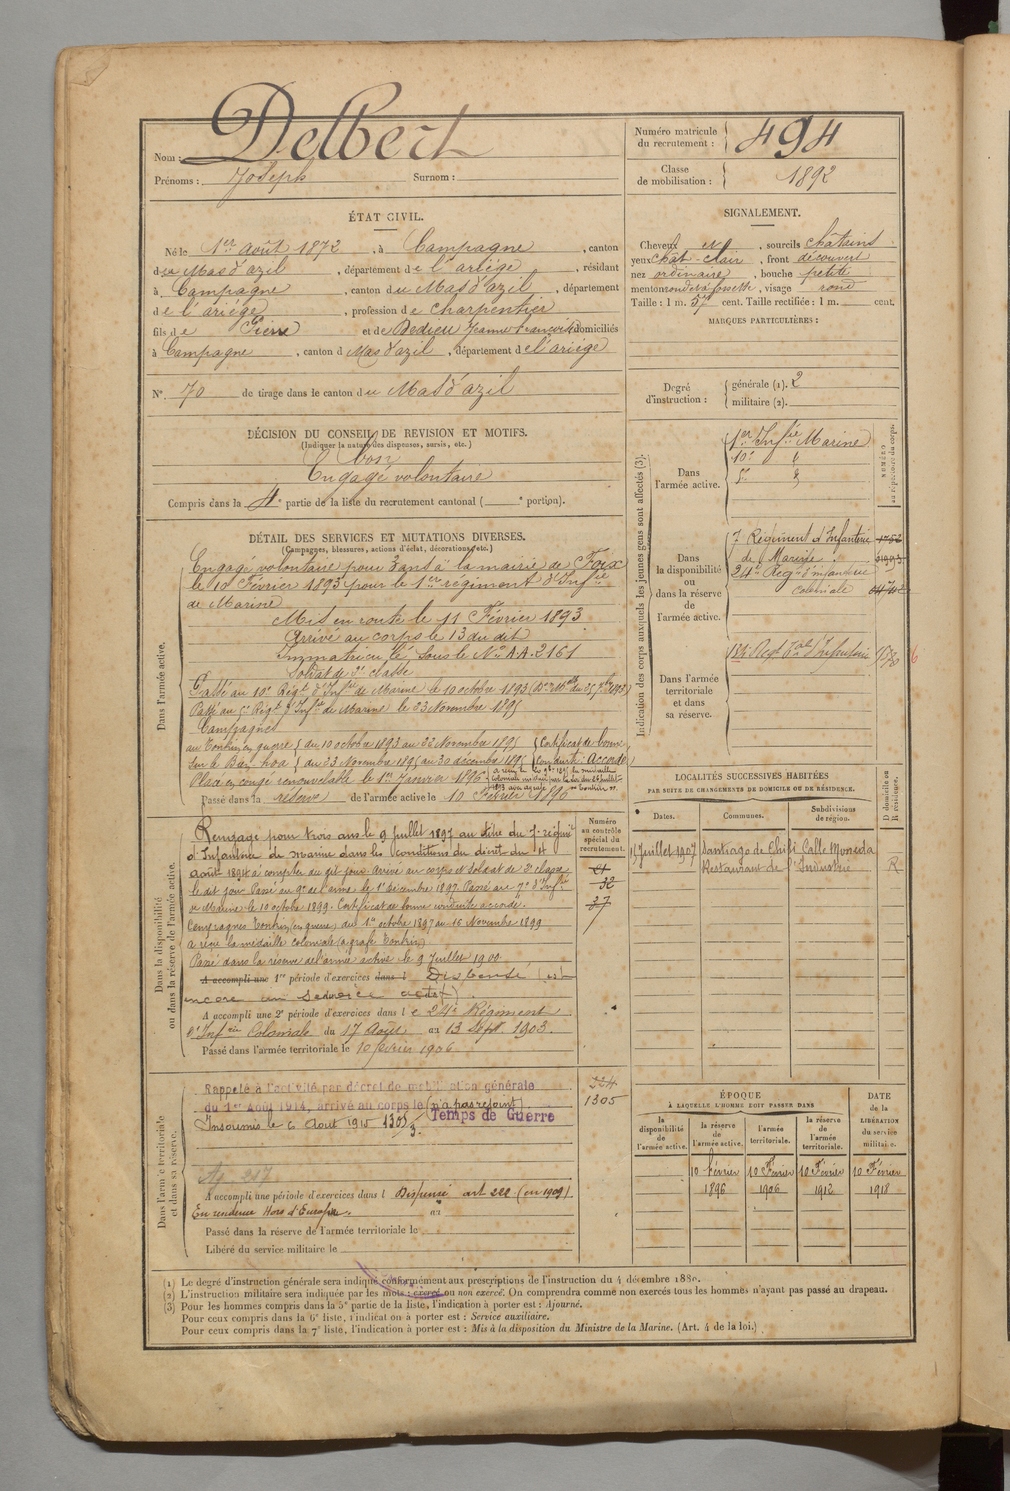 Nom : Delbert
Prénoms : Joseph Surnom :
Numéro matricule du recrutement : 494
Classe de mobilisation : 1892
ÉTAT CIVIL.
Né le 1er Août 1872, à Campagne, canton
du Mas d'azil, département de l'ariège, résidant
à Campagne, canton du Mas d'azil, département
de l'ariège, profession de charpentier
fils de Pierre et de Dedieu Jeanne Françoise domiciliés
à Campagne, canton d Mas d'azil, département de l'ariège
N° 70 de tirage dans le canton du Mas d'azil
SIGNALEMENT.
Cheveux N, sourcils châtains
yeux chât-clair, front découvert
nez ordinaire, bouche petite
menton rond et à fossette, visage rond
Taille : 1 m. 57 cent. Taille rectifiée : 1 m. cent.
MARQUES PARTICULIÈRES :
Degré d'instruction : générale (1). 2
militaire (2).
DÉCISION DU CONSEIL DE REVISION ET MOTIFS.
(Indiquer la nature des dispenses, sursis, etc.)
bon
Engagé volontaire
Compris dans la 4e partie de la liste du recrutement cantonal ( e portion).
DÉTAIL DES SERVICES ET MUTATIONS DIVERSES.
(Campagnes, blessures, actions d'éclat, décorations, etc.)
Dans l'armée active.
Engagé volontaire pour 3 ans à la mairie de Foix
le 10 Février 1893 pour le 1er régiment d'Infie
de Marine
Mis en route le 11 Février 1893
Arrivé au corps le 13 du dit
Immatriculé, sous le No AA.2161
Soldat de 2e classe
Passé au 10e Régt d'Infie de Marine le 10 octobre 1893
Passé au 5e Régt d'Infie de Marine le 23 Novembre 1895
Campagnes
au Tonkin en guerre du 10 octobre 1893 au 22 Novembre 1895
Sur le Bien-hoa du 23 Novembre 1895 au 30 décembre 1895
Certificat de bonne conduite : Accordé
Placé en congé renouvelable le 1er Janvier 1896
Passé dans la réserve de l'armée active le 10 Février 1896
Indication des corps auxquels les jeunes gens sont affectés (3).
NUMÉRO au répertoire du corps.
Dans l'armée active.
1er Infie Marine
10e "
5e "
Dans la disponibilité ou dans la réserve de l'armée active.
7e Régiment d'Infanterie
de Marine
24e Regt d'infanterie
coloniale
Dans l'armée territoriale et dans sa réserve.
Dans la disponibilité ou dans la réserve de l'armée active.
Numéro au contrôle spécial du recrutement.
32
37
Rengagé pour trois ans le 9 juillet 1897 au titre du 7e régimt
d'Infanterie de marine dans les conditions du décret du 4
août 1894 à compter du dit jour. Arrivé au corps et soldat de 2e classe
le dit jour. Passé au 9e de l'arme le 1er décembre 1897. Passé au 7e d'Infie
de Marine le 10 octobre 1899. Certificat de bonne conduite accordé.
Campagnes Tonkin (en guerre) du 1er octobre 1897 au 16 Novembre 1899
a reçu la médaille coloniale (agrafe Tonkin)
Passé dans la réserve de l'armée active le 9 Juillet 1900
A accompli une 1re période d'exercices dans l Dispensé (est
encore en service actif)
A accompli une 2e période d'exercices dans le 24e Régiment
d'Infrie Coloniale du 17 Août au 13 Sept. 1903.
Passé dans l'armée territoriale le 10 février 1906
LOCALITÉS SUCCESSIVES HABITÉES
PAR SUITE DE CHANGEMENTS DE DOMICILE OU DE RÉSIDENCE.
Dates. Communes. Subdivisions de région. D. domicile ou R. résidence.
15 Juillet 1907 Santiago de Chili Calle Moneda
Restaurant de l'Industrie R
Dans l'armée territoriale et dans sa réserve.
324
1305
Rappelé à l'activité par décret de mobilisation générale
du 1er Août 1914, arrivé au corps le (n'a pas rejoint)
Temps de Guerre
Insoumis le 6 Août 1915
A accompli une période d'exercices dans l Dispensé art 222 (en 1909)
En résidence Hors d'Europe. au
Passé dans la réserve de l'armée territoriale le
Libéré du service militaire le
ÉPOQUE
À LAQUELLE L'HOMME DOIT PASSER DANS
la disponibilité de l'armée active. la réserve de l'armée active. l'armée territoriale. la réserve de l'armée territoriale. DATE de la LIBÉRATION du service militaire.
10 Février 10 Février 10 Février 10 Février
1896 1906 1912 1918
(1) Le degré d'instruction générale sera indiqué conformément aux prescriptions de l'instruction du 4 décembre 1889.
(2) L'instruction militaire sera indiquée par les mots : exercé ou non exercé. On comprendra comme non exercés tous les hommes n'ayant pas passé au drapeau.
(3) Pour les hommes compris dans la 5e partie de la liste, l'indication à porter est : Ajourné.
Pour ceux compris dans la 6e liste, l'indication à porter est : Service auxiliaire.
Pour ceux compris dans la 7e liste, l'indication à porter est : Mis à la disposition du Ministre de la Marine. (Art. 4 de la loi.)